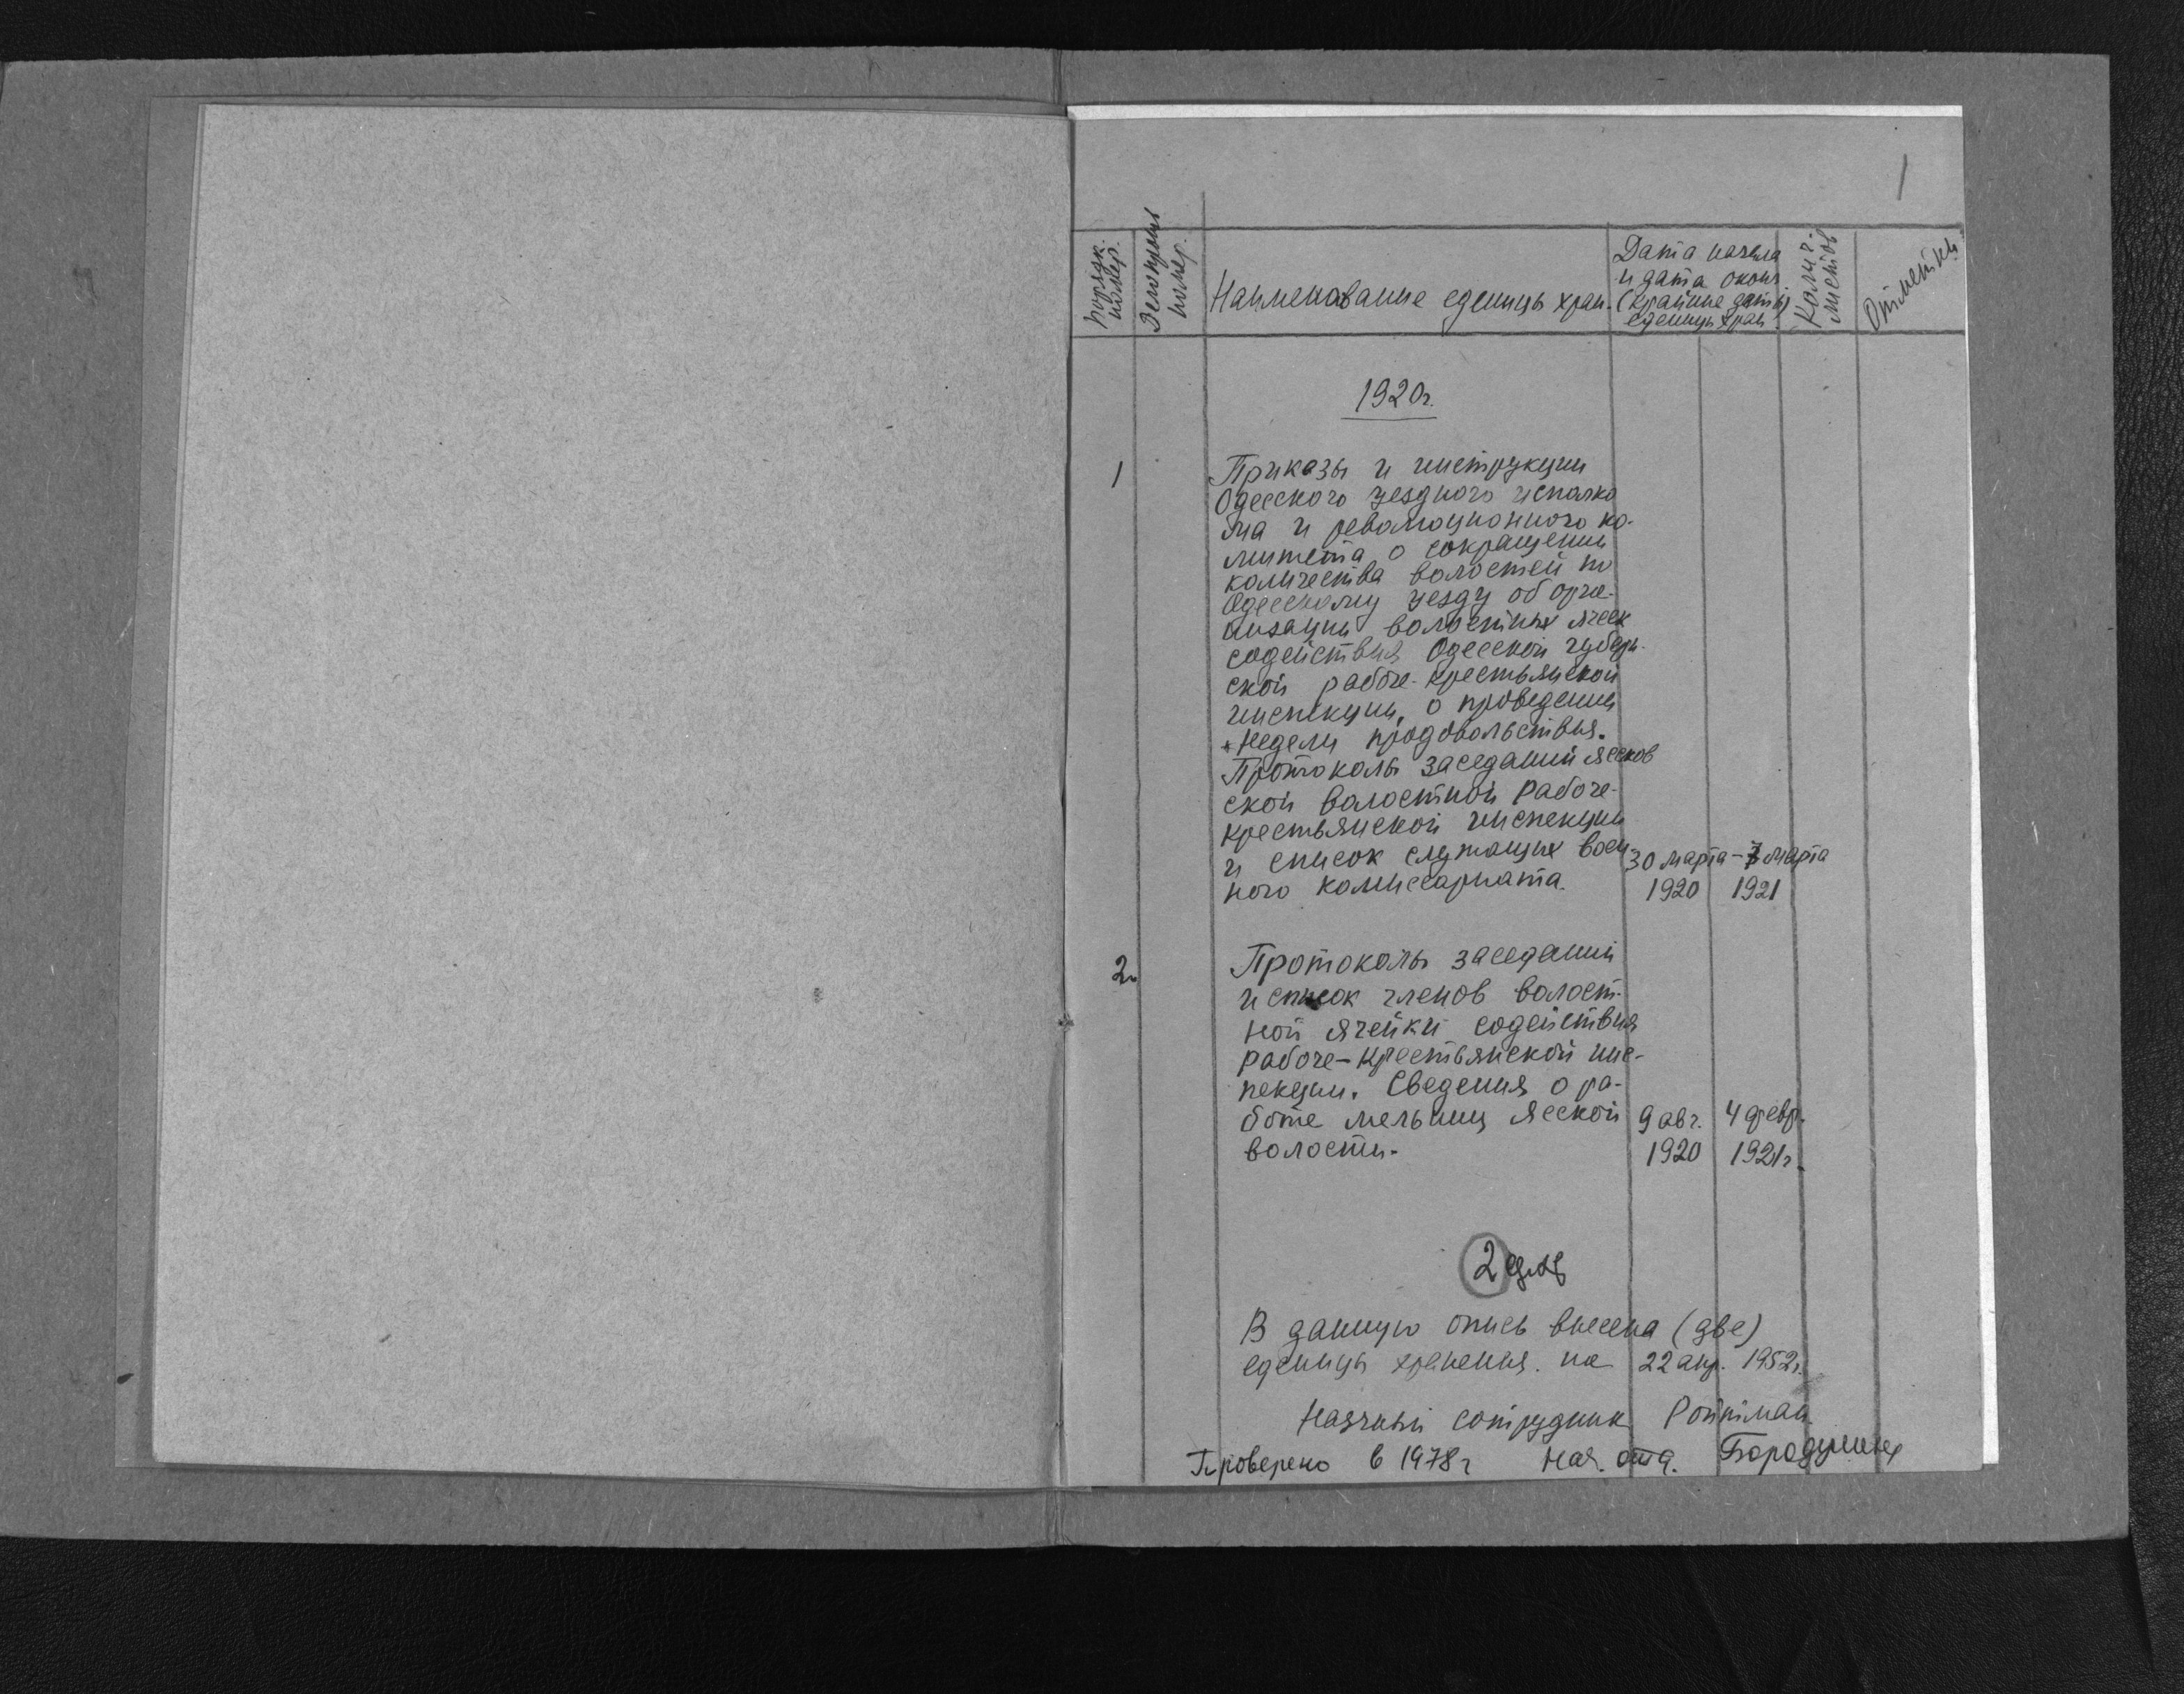 1
Порядк. номер.
номер.
Наименование единицы хран.
Дата начала
и дата оконч.
(крайние даты)
единицы хран.
Колич. листов
Отметки
1920г.
1
Приказы и инструкции
Одесского уездного исполко
ма и революционного ко-
митета о сокращении
количества волостей по
Одесскому уезду об орга-
низации волостных ячеек
содействия Одесской губерн-
ской рабоче-крестьянской
инспекции, о проведении
"Недели продовольствия.
Протоколы заседаний Ясков
ской волостной рабоче-
крестьянской инспекции
и список служащих воен
ного комиссариата.
30 марта - 7 марта
1920 1921
2.
Протоколы заседаний
и список членов волост-
ной ячейки содействия
рабоче-крестьянской инс-
пекции. Сведения о ра-
боте мельниц Ясской
волости.
9 авг. 4 февр.
1920 1921г.
2
В данную опись внесена (две)
единицы хранения. на 22 апр. 1952г.
Научный сотрудник Ройтман
Проверено в 1978г Нач. отд.